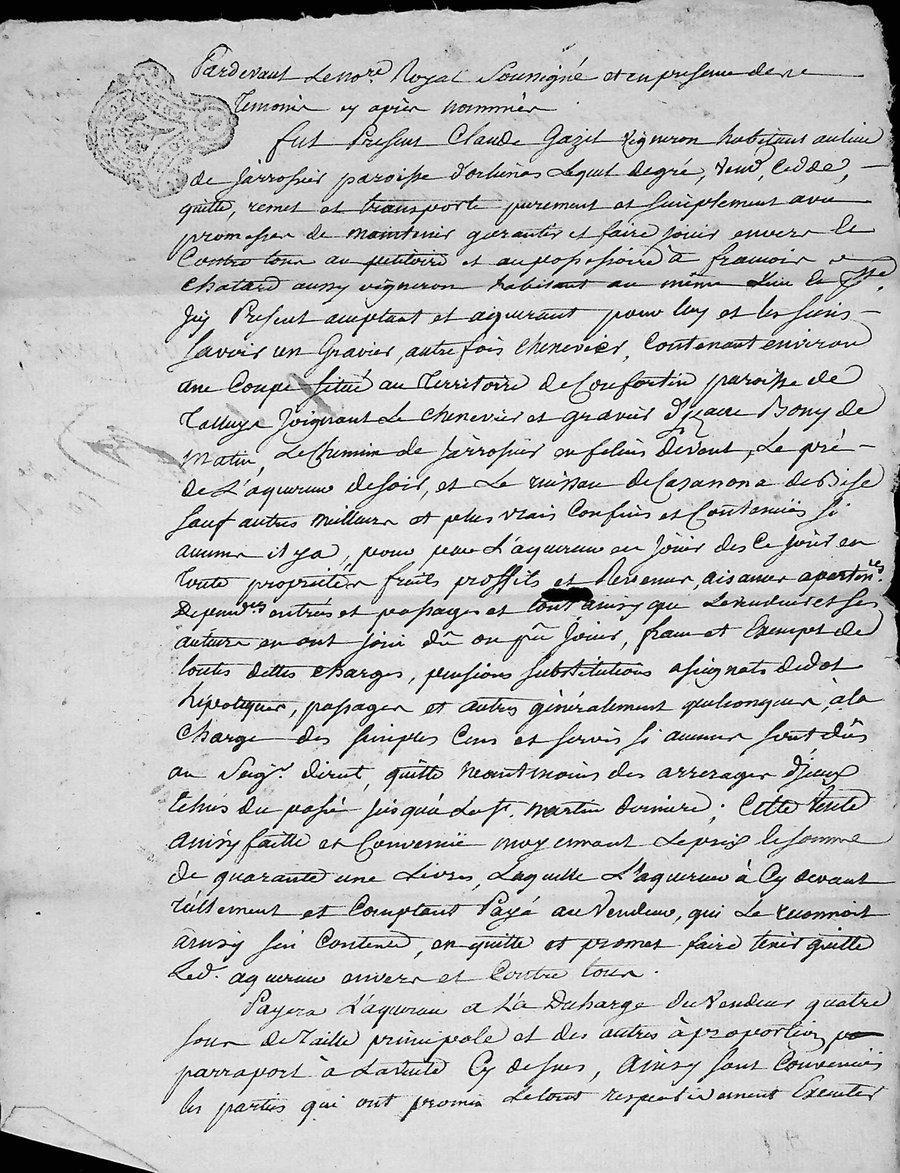 Pardevant Le no.re Royal Soussigné et en presence de
Temoins cy après nommés
fut Present Claude Gazet vigneron habitant au lieu
de Jarrosier paroisse d'orlienas Lequel de gré, vend, Cedde,
quitte, remet et transporte purement et simplement avec
promesse de maintenir garantir et faire Jouir envers et
Contre tous au petitoire et au possessoire à francois
Chatard aussy vigneron habitant au même Lieu et p.sse
Icy Present acceptant et aquerant pour luy et les siens
Savoir un Gravier, autre fois Chenevier, Contenant environ
une Coupe situé au Territoire de Confortin paroisse de
Talluye Joignant Le Chenevier et gravier d'jeane Bony de
matin, Le Chemin de Jarrosier en felins devent, Le pré
de L'aquereur de soir, et Le ruisseau de Casanona de Bise
Sauf autres meilleurs et plus vrais Confins et Contenües si
aucuns il y a, pour par L'aquereur en Joüir des Ce Jour en
toute proprieté fruits proffits et Revenus, aisances aparten.ces
Depend.ces entrées et passages et tout ainsy que Le vendeur et ses
auteurs en ont Joui dû ou pû Joüir, franc et Exempt de
toutes dettes charges, pensions substitutions assignats de dot
hipoteques, passages et autres généralement quelconques, à la
Charge des simples Cens et servis si aucuns sont dûs
au Seig.r direct, quitte neantmoins des arrerages d'jceux
Echus du passé Jusqu'à La s.t martin derniere ; Cette Vente
ainsy faitte et Convenüe moyennant Le prix et somme
de quarante une Livres, Laquelle L'aquereur à Cy devant
réellement et Comptant Payé au Vendeur, qui Le reconnoit
ainsy s'en Contente, en quitte et promet faire tenir quitte
Led. aquereur envers et Contre tous.
Payera L'aquereur a La Decharge du Vendeur quatre
sous de Taille principale et des autres à proportion
par raport à La vente Cy dessus, ainsy sont Convenües
les parties qui ont promis Le tout respectivement Executer